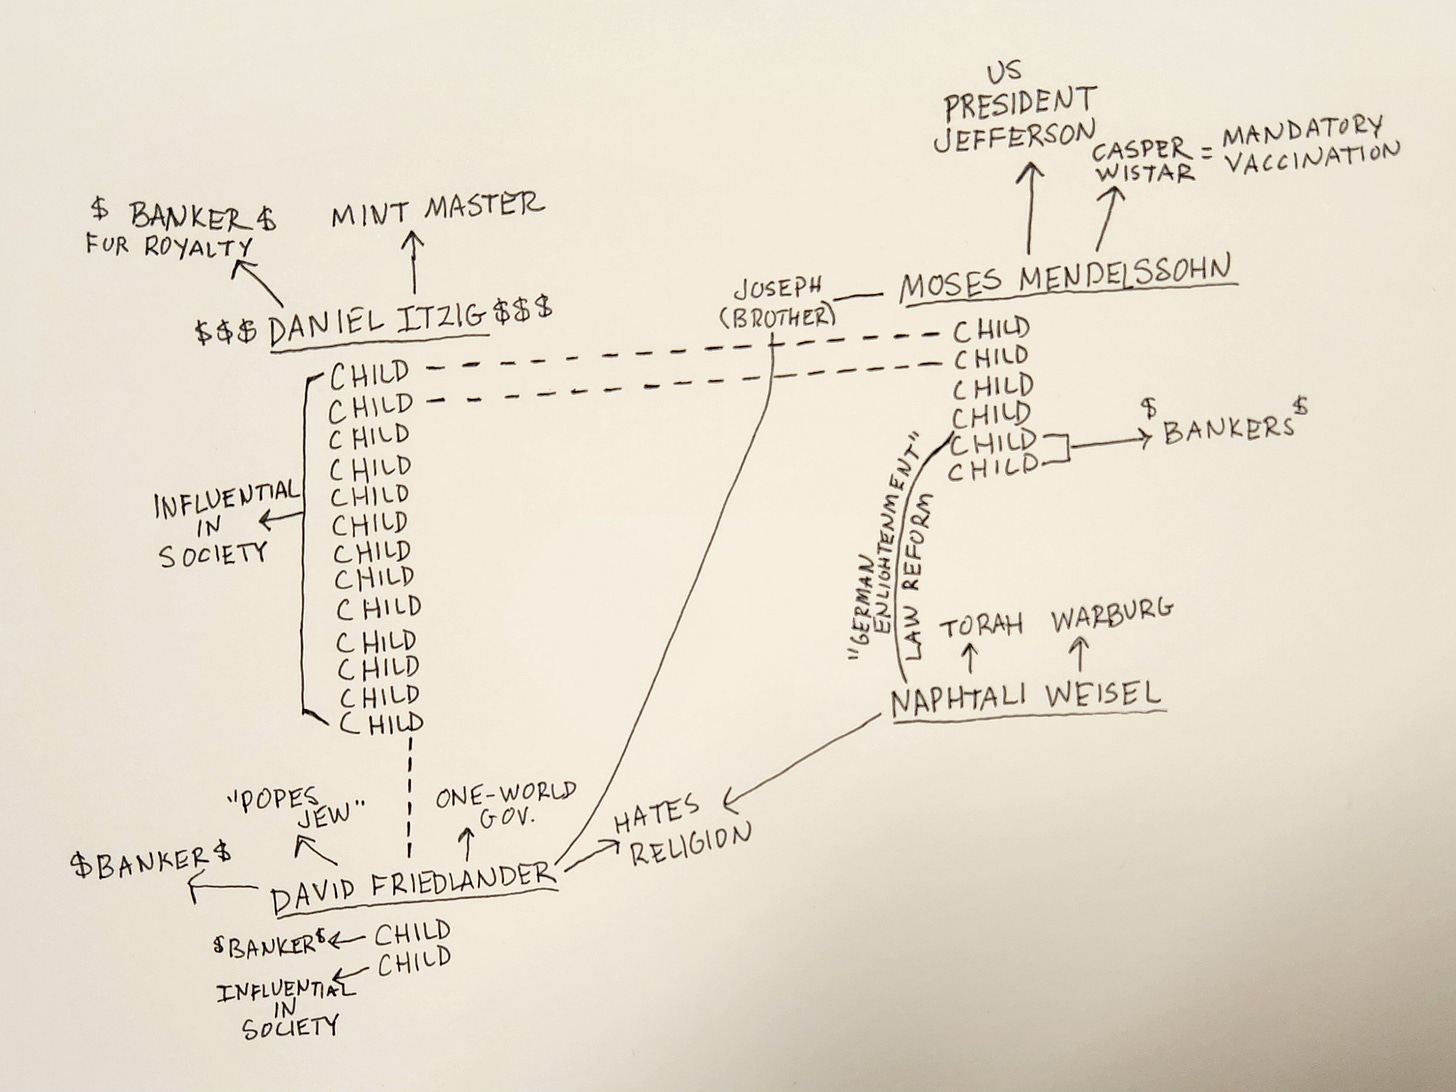 US
PRESIDENT
JEFFERSON
CASPER = MANDATORY
WISTAR VACCINATION
$ BANKER $
FUR ROYALTY
MINT MASTER
$$$ DANIEL ITZIG $$$
JOSEPH
(BROTHER)
MOSES MENDELSSOHN
CHILD
CHILD
CHILD
CHILD
CHILD
CHILD
CHILD
CHILD
CHILD
CHILD
CHILD
CHILD
CHILD
INFLUENTIAL
IN
SOCIETY
CHILD
CHILD
CHILD
CHILD
CHILD
CHILD
$ BANKERS $
"GERMAN
ENLIGHTENMENT"
LAW REFORM
TORAH
WARBURG
NAPHTALI WEISEL
"POPES
JEW"
ONE-WORLD
GOV.
HATES
RELIGION
$BANKER$
DAVID FRIEDLANDER
$BANKER$
CHILD
CHILD
INFLUENTIAL
IN
SOCIETY